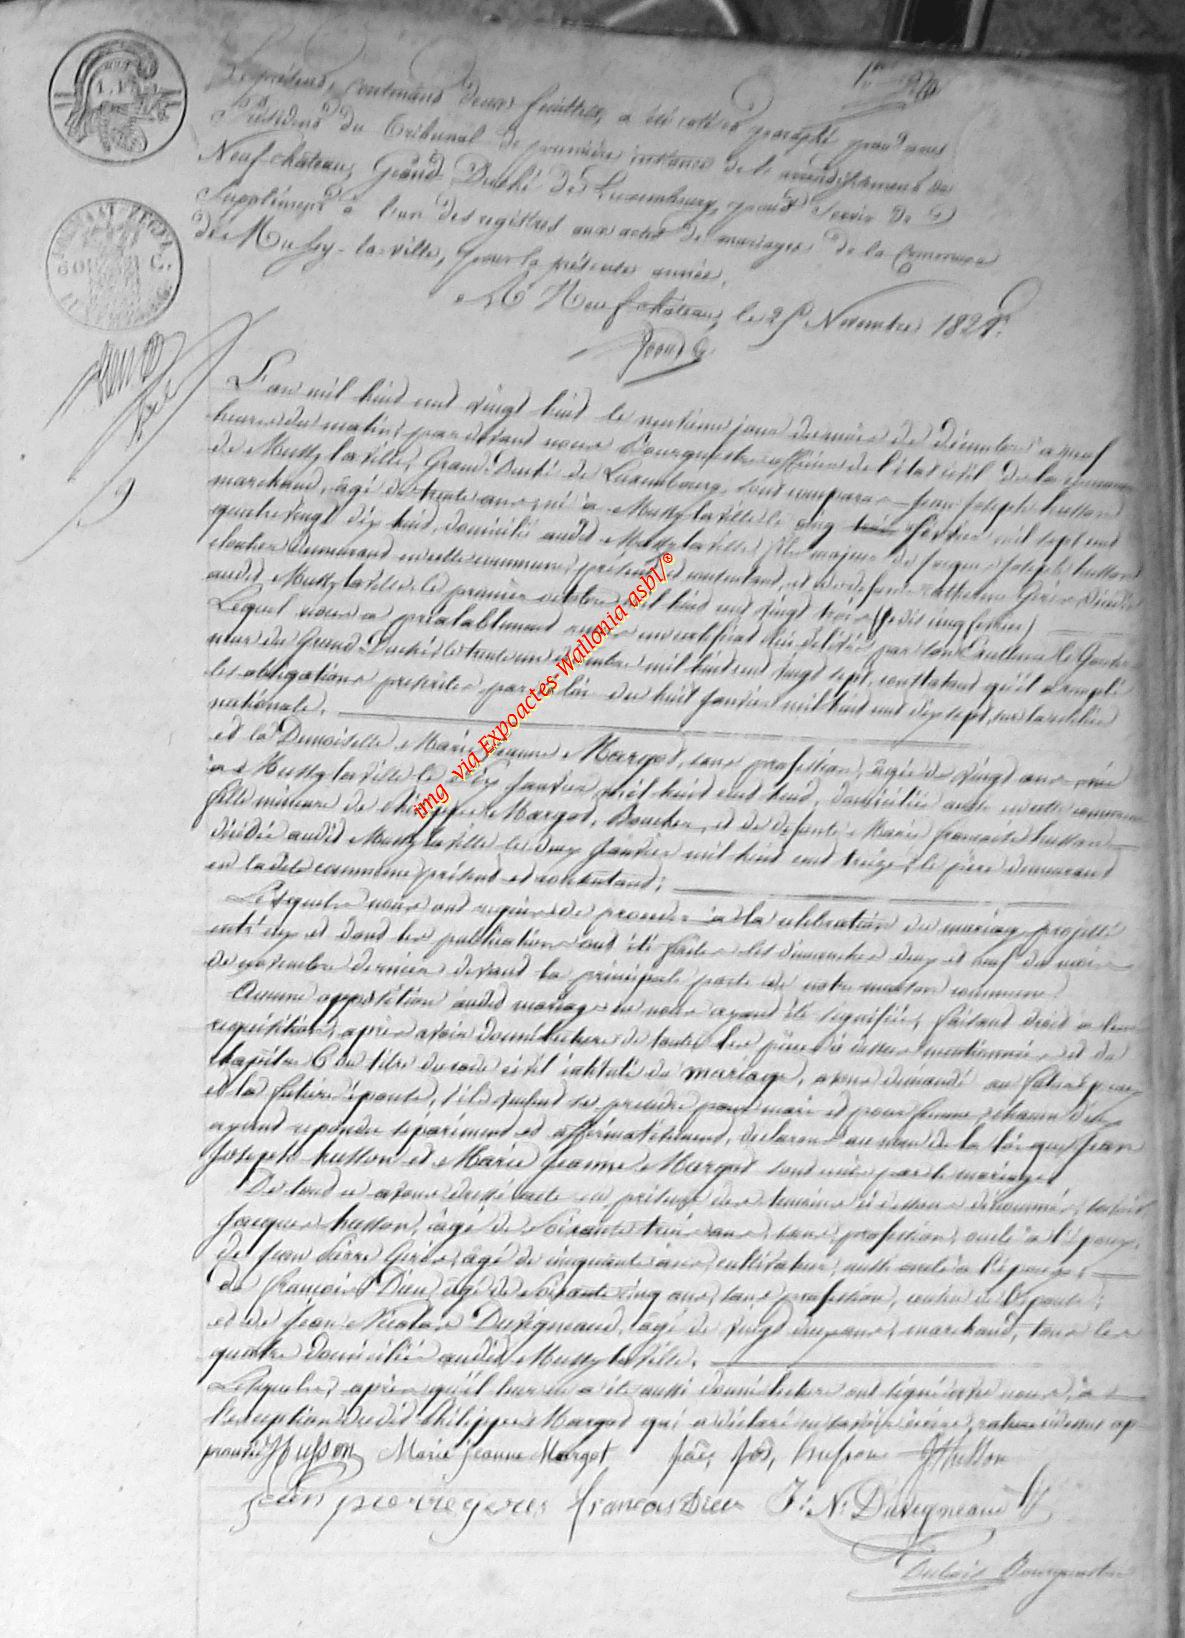 1er
Le présent, contenant deux feuillets, a été coté et paraphé par nous
Président du Tribunal de première instance de l'arrondissement de
Neufchâteau, Grand Duché de Luxembourg, pour servir de
Supplément à l'un des registres aux actes de mariages de la Commune
de Mussy-la-ville, pour la présente année.
A Neufchâteau, le 25 Novembre 1828.
L'an mil huit cent vingt huit le neuvième jour du mois de Décembre à neuf
heures du matin, par devant nous Bourgmestre officier de l'état civil de la commune
de Mussy la ville, Grand-Duché de Luxembourg, sont comparus Jean Joseph husson
marchand, âgé de trente ans, né à Mussy la ville le cinq février mil sept cent
quatre vingt dix huit, domicilié audit Mussy la ville, fils majeur de Jacques Joseph husson
cloutier demeurant en cette commune, présent et consentant, et de défunte Catherine Gérès décédée
audit Mussy la ville le premier octobre mil huit cent vingt trois (je dis cinq février)
Lequel nous a préalablement remis un certificat lui délivré par son Excellence le Gouver-
neur du Grand Duché le trente un décembre mil huit cent vingt sept, constatant qu'il a rempli
les obligations prescrites par la loi du huit janvier mil huit cent dix sept, sur la milice
nationale.
et la Demoiselle Marie Jeanne Margot, sans profession, âgée de vingt ans, née
à Mussy la ville le dix Janvier mil huit cent huit, domiciliée aussi en cette commune
fille mineure de Philippe Margot, Boucher, et de défunte Marie françoise husson
décédée audit Mussy la ville le deux Janvier mil huit cent treize; le père demeurant
en la dite commune présent et consentant;
Lesquels nous ont requis de procéder à la célébration du mariage projetté
entr'eux et dont les publications ont été faites les dimanches deux et neuf du mois
de novembre dernier devant la principale porte de notre maison commune.
Aucune opposition audit mariage ne nous ayant été signifiée, faisant droit à leur
requisition, après avoir donné lecture de toutes les pièces ci dessus mentionnées et du
chapitre 6 du titre du code civil intitulé du mariage, avons demandé au futur époux
et la future épouse, s'ils veulent se prendre pour mari et pour femme, chacun d'eux
ayant répondu séparément et affirmativement, déclarons au nom de la loi que Jean
Joseph husson et Marie Jeanne Margot sont unis par le mariage
De tout ce avons dressé acte en présence des témoins ci dessous dénommés, savoir
Jacques husson, âgé de Soixante trois ans, sans profession, oncle à l'époux,
de Jean Pierre Gérès, âgé de cinquante ans, cultivateur, aussi oncle à l'époux;
de François Dieu, âgé de Soixante cinq ans, sans profession, cousin de l'épouse;
et de Jean Nicolas Duvigneaud, âgé de vingt deux ans, marchand, tous les
quatre domiciliés audit Mussy la ville.
Lesquels, après qu'il leur en a été aussi donné lecture ont signé avec nous, à
l'exception dudit Philippe Margot qui a déclaré ne savoir écrire, rature ci dessus ap-
prouvée JJ husson Marie Jeanne Margot Jac, Jos, husson J Husson
jean pierre geres françois Dieu J: N: Duvigneaud
Dubois Bourgmestre
img via Expoactes-Wallonia asbl/®